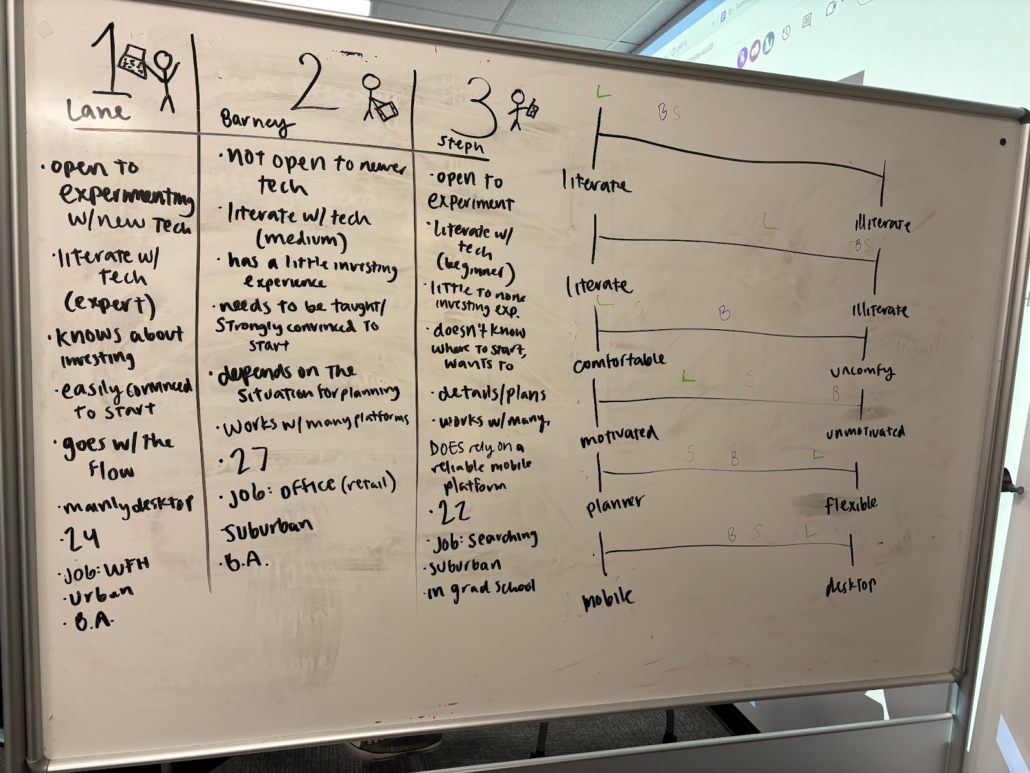 1
Lane
• open to
experimenting
w/new tech
• literate w/
tech
(expert)
• knows about
investing
• easily convinced
to start
• goes w/ the
flow
• mainly desktop
• 24
• job: WFH
• urban
• B.A.
2
Barney
• not open to newer
tech
• literate w/ tech
(medium)
• has a little investing
experience
• needs to be taught/
strongly convinced to
start
• depends on the
situation for planning
• works w/ many platforms
• 27
• job: office (retail)
suburban
• B.A.
3
Steph
• open to
experiment
• literate w/
tech
(beginner)
• little to none
investing exp.
• doesn't know
where to start,
wants to
• details/plans
• works w/ many,
DOES rely on a
reliable mobile
platform
• 22
• job: searching
• suburban
• in grad school
L B S
literate illiterate
L B S
literate illiterate
L S B
comfortable uncomfy
L S B
motivated unmotivated
S B L
planner flexible
B S L
mobile desktop